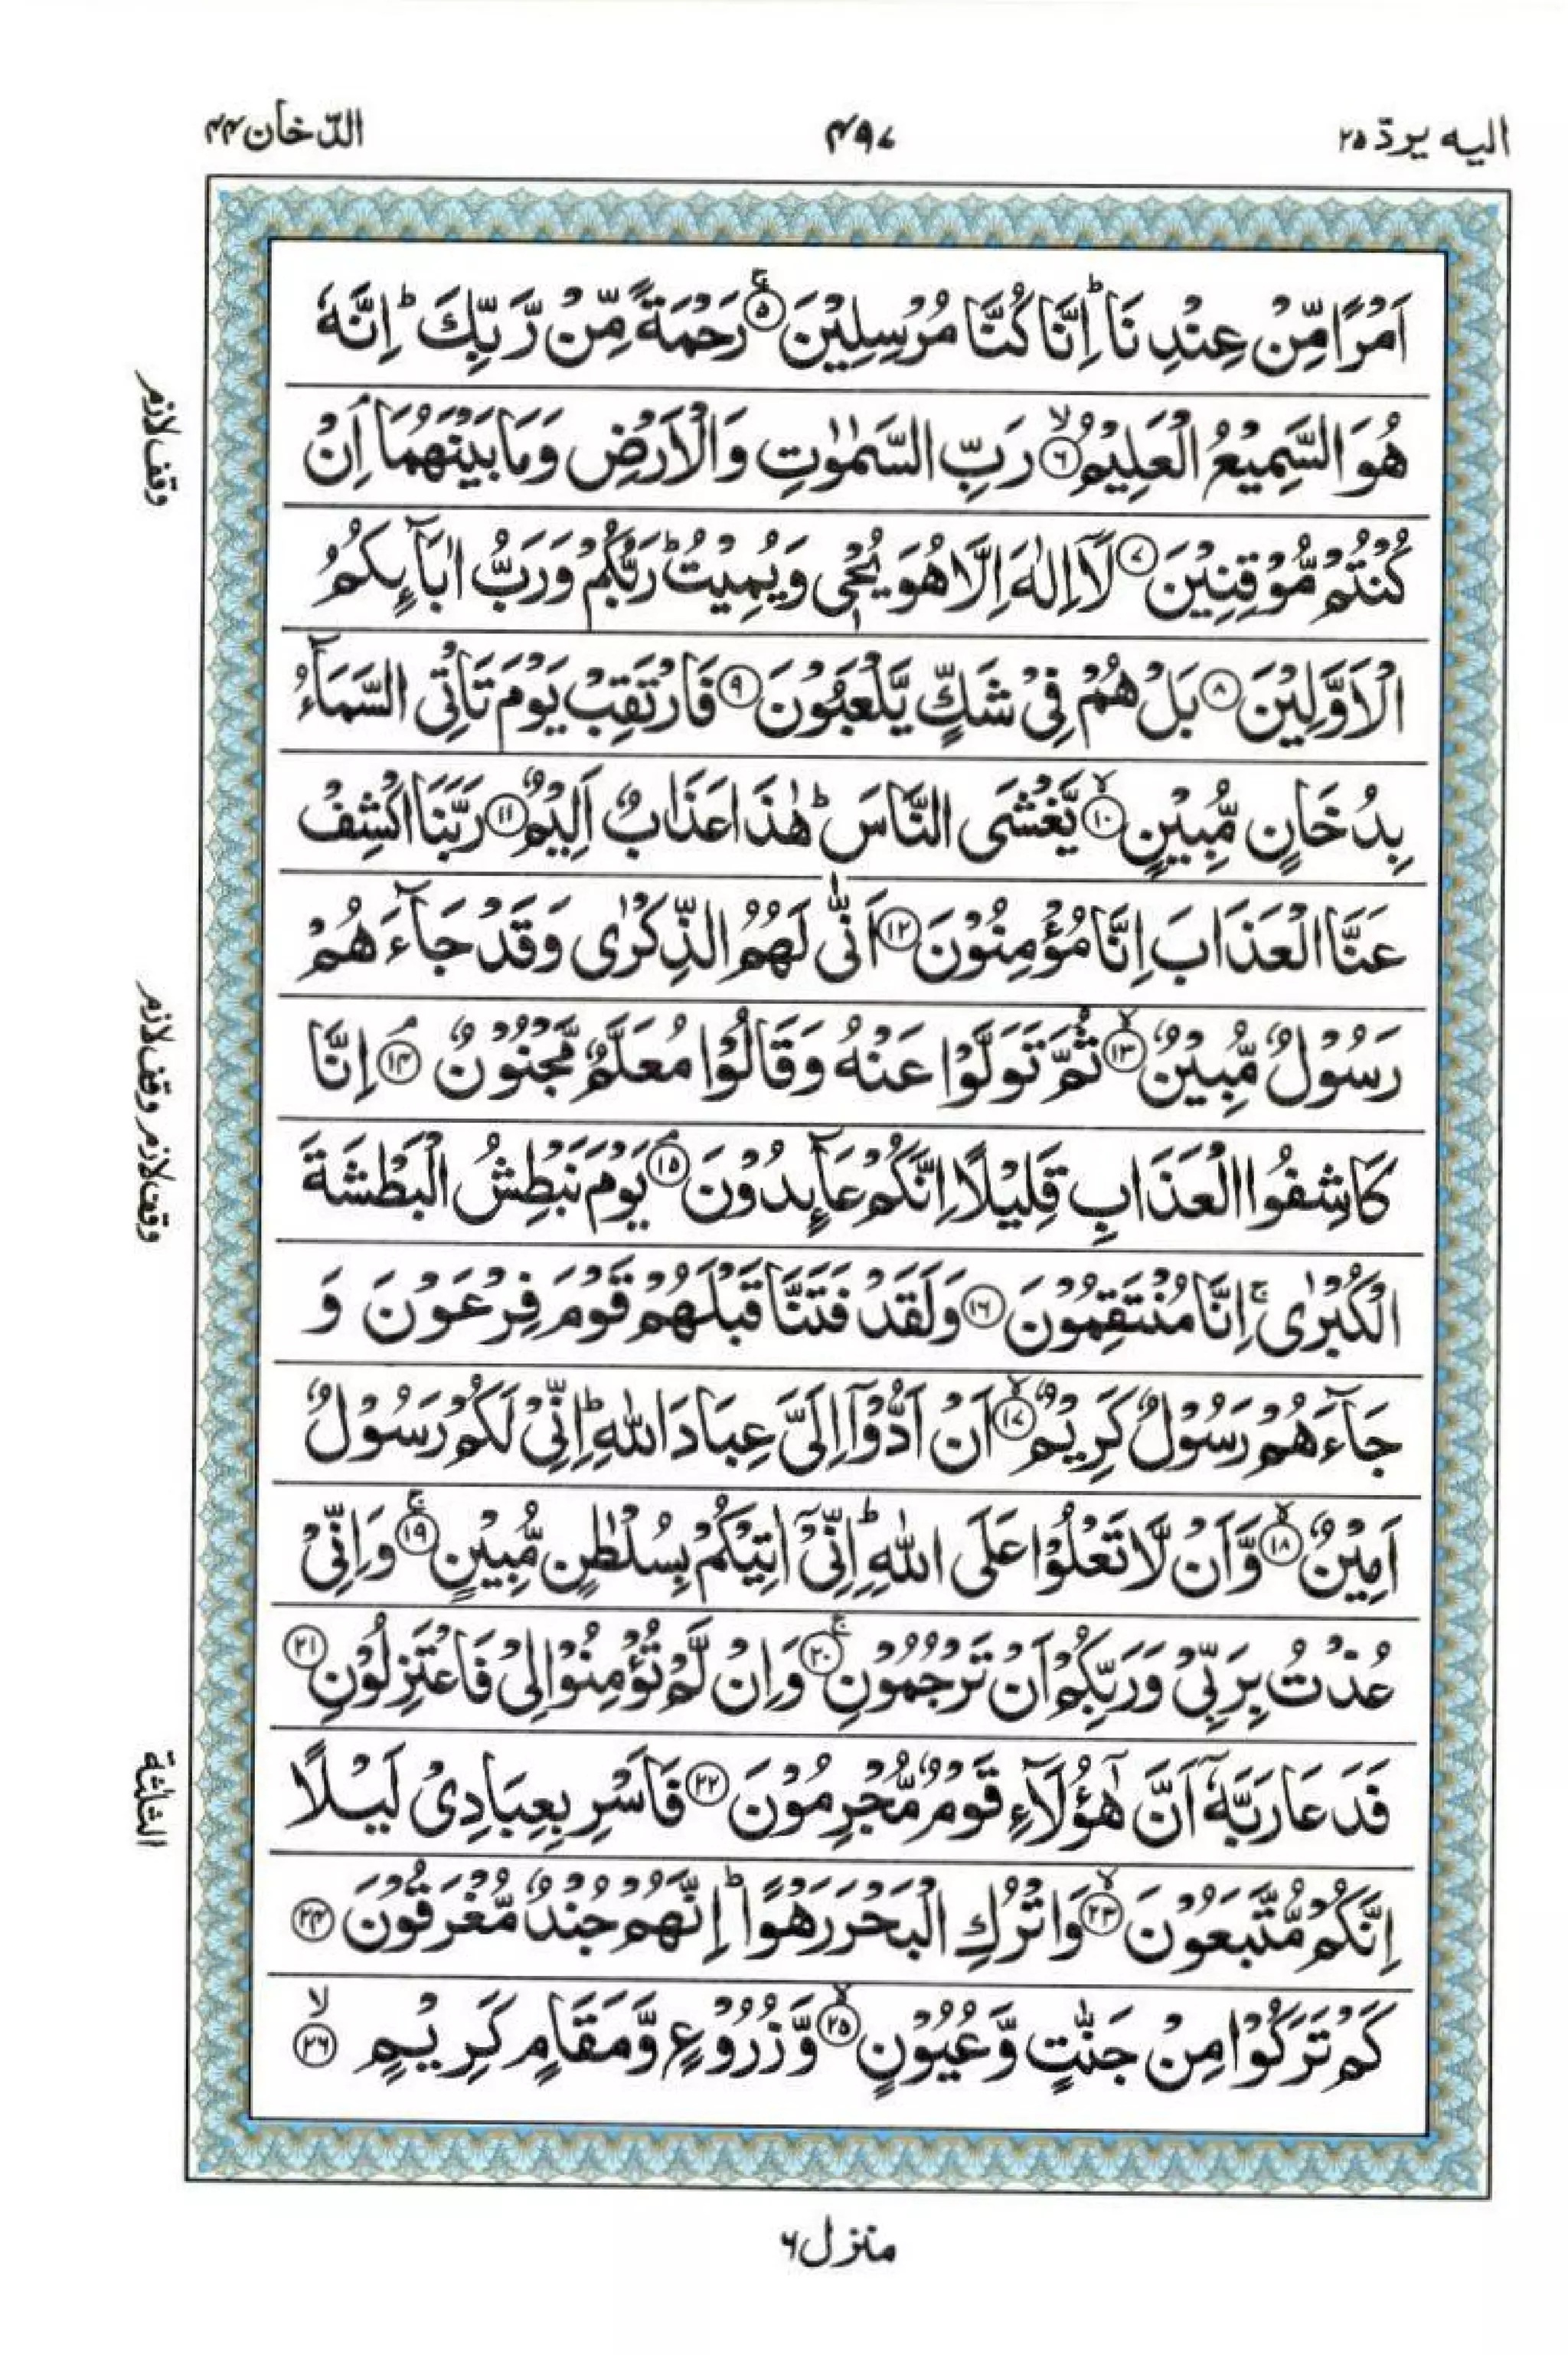 الیه یردّ ۲۵
۴۹۷
الدّخان ۴۴
اَمْرًا مِّنْ عِنْدِنَا ؕ اِنَّا كُنَّا مُرْسِلِیْنَ ۚ ۵ رَحْمَةً مِّنْ رَّبِّكَ ؕ اِنَّهٗ
هُوَ السَّمِیْعُ الْعَلِیْمُ ۙ ۶ رَبِّ السَّمٰوٰتِ وَالْاَرْضِ وَمَا بَیْنَهُمَا ۘ اِنْ
كُنْتُمْ مُّوْقِنِیْنَ ۷ لَاۤ اِلٰهَ اِلَّا هُوَ یُحْیٖ وَیُمِیْتُ ؕ رَبُّكُمْ وَرَبُّ اٰبَآىِٕكُمُ
الْاَوَّلِیْنَ ۸ بَلْ هُمْ فِیْ شَكٍّ یَّلْعَبُوْنَ ۹ فَارْتَقِبْ یَوْمَ تَاْتِی السَّمَآءُ
بِدُخَانٍ مُّبِیْنٍ ۙ ۱۰ یَّغْشَی النَّاسَ ؕ هٰذَا عَذَابٌ اَلِیْمٌ ۱۱ رَبَّنَا اكْشِفْ
عَنَّا الْعَذَابَ اِنَّا مُؤْمِنُوْنَ ۱۲ اَنّٰی لَهُمُ الذِّكْرٰی وَقَدْ جَآءَهُمْ
رَسُوْلٌ مُّبِیْنٌ ۙ ۱۳ ثُمَّ تَوَلَّوْا عَنْهُ وَقَالُوْا مُعَلَّمٌ مَّجْنُوْنٌ ۘ ۱۴ اِنَّا
كَاشِفُوا الْعَذَابِ قَلِیْلًا اِنَّكُمْ عَآىِٕدُوْنَ ۘ ۱۵ یَوْمَ نَبْطِشُ الْبَطْشَةَ
الْكُبْرٰی ۚ اِنَّا مُنْتَقِمُوْنَ ۱۶ وَلَقَدْ فَتَنَّا قَبْلَهُمْ قَوْمَ فِرْعَوْنَ وَ
جَآءَهُمْ رَسُوْلٌ كَرِیْمٌ ۙ ۱۷ اَنْ اَدُّوْۤا اِلَیَّ عِبَادَ اللّٰهِ ؕ اِنِّیْ لَكُمْ رَسُوْلٌ
اَمِیْنٌ ۙ ۱۸ وَّاَنْ لَّا تَعْلُوْا عَلَی اللّٰهِ ؕ اِنِّیْۤ اٰتِیْكُمْ بِسُلْطٰنٍ مُّبِیْنٍ ۚ ۱۹ وَاِنِّیْ
عُذْتُ بِرَبِّیْ وَرَبِّكُمْ اَنْ تَرْجُمُوْنِ ۚ ۲۰ وَاِنْ لَّمْ تُؤْمِنُوْا لِیْ فَاعْتَزِلُوْنِ ۲۱
فَدَعَا رَبَّهٗۤ اَنَّ هٰۤؤُلَآءِ قَوْمٌ مُّجْرِمُوْنَ ۲۲ فَاَسْرِ بِعِبَادِیْ لَیْلًا
اِنَّكُمْ مُّتَّبَعُوْنَ ۙ ۲۳ وَاتْرُكِ الْبَحْرَ رَهْوًا ؕ اِنَّهُمْ جُنْدٌ مُّغْرَقُوْنَ ۲۴
كَمْ تَرَكُوْا مِنْ جَنّٰتٍ وَّعُیُوْنٍ ۙ ۲۵ وَّزُرُوْعٍ وَّمَقَامٍ كَرِیْمٍ ۙ ۲۶
وقف لازم
وقف لازم وقف لازم
الثلثة
منزل ۶